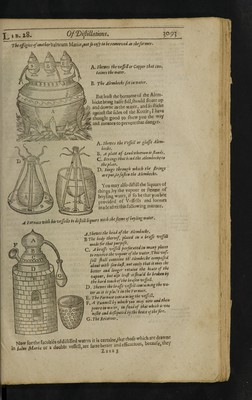 L I B. 28.
Of Distillations.
The effigies of another balneum Mariæ, not so easy to be removed as the former.
A. Shewes the vessell or Copper that con-
taines the water.
B. The Alembecke set in water.
But lest the bottome of the Alem-
becke being halfe full, should float up
and downe in the water, and so sticke
against the sides of the Kettle; I have
thought good to shew you the way
and meanes to prevent that danger.
A. Shewes the vessell or glasse Alem-
becke.
B. A plate of Lead whereon it stands.
C. Strings that binde the Alembecke to
the plate.
D. Rings through which the strings
are put, to fasten the Alembecke.
You may also distill the liquors of
things by the vapour or steame of
boyling water, if so be that you bee
provided of Vessells and formes
made after this following manner.
A Fornace with his vessells to distill liquors with the steame of boyling water.
A. Shewes the head of the Alembecke.
B. The body thereof, placed in a brasse vessell
made for that purpose.
C. A brasse vessell perforated in many places
to receive the vapour of the water. This vessell
shall containe the Alembecke compassed
about with saw-dust, not onely that it may the
better and longer retaine the heate of the
vapour, but also lest it should be broken by
the hard touch of the brasen vessell.
D. Shewes the brasse vessell containing the wa-
ter as it is plac't in the Fornace.
E. The Fornace containing the vessell.
F. A Funnell by which you may now and then
poure in water, in stead of that which is va-
nisht and dissipated by the heate of the fire.
G. The Receiver.
Now for the faculties of distilled waters, it is certaine, that those which are drawne
in balneo Mariæ or a double vessell, are farre better and efficacious, because, they